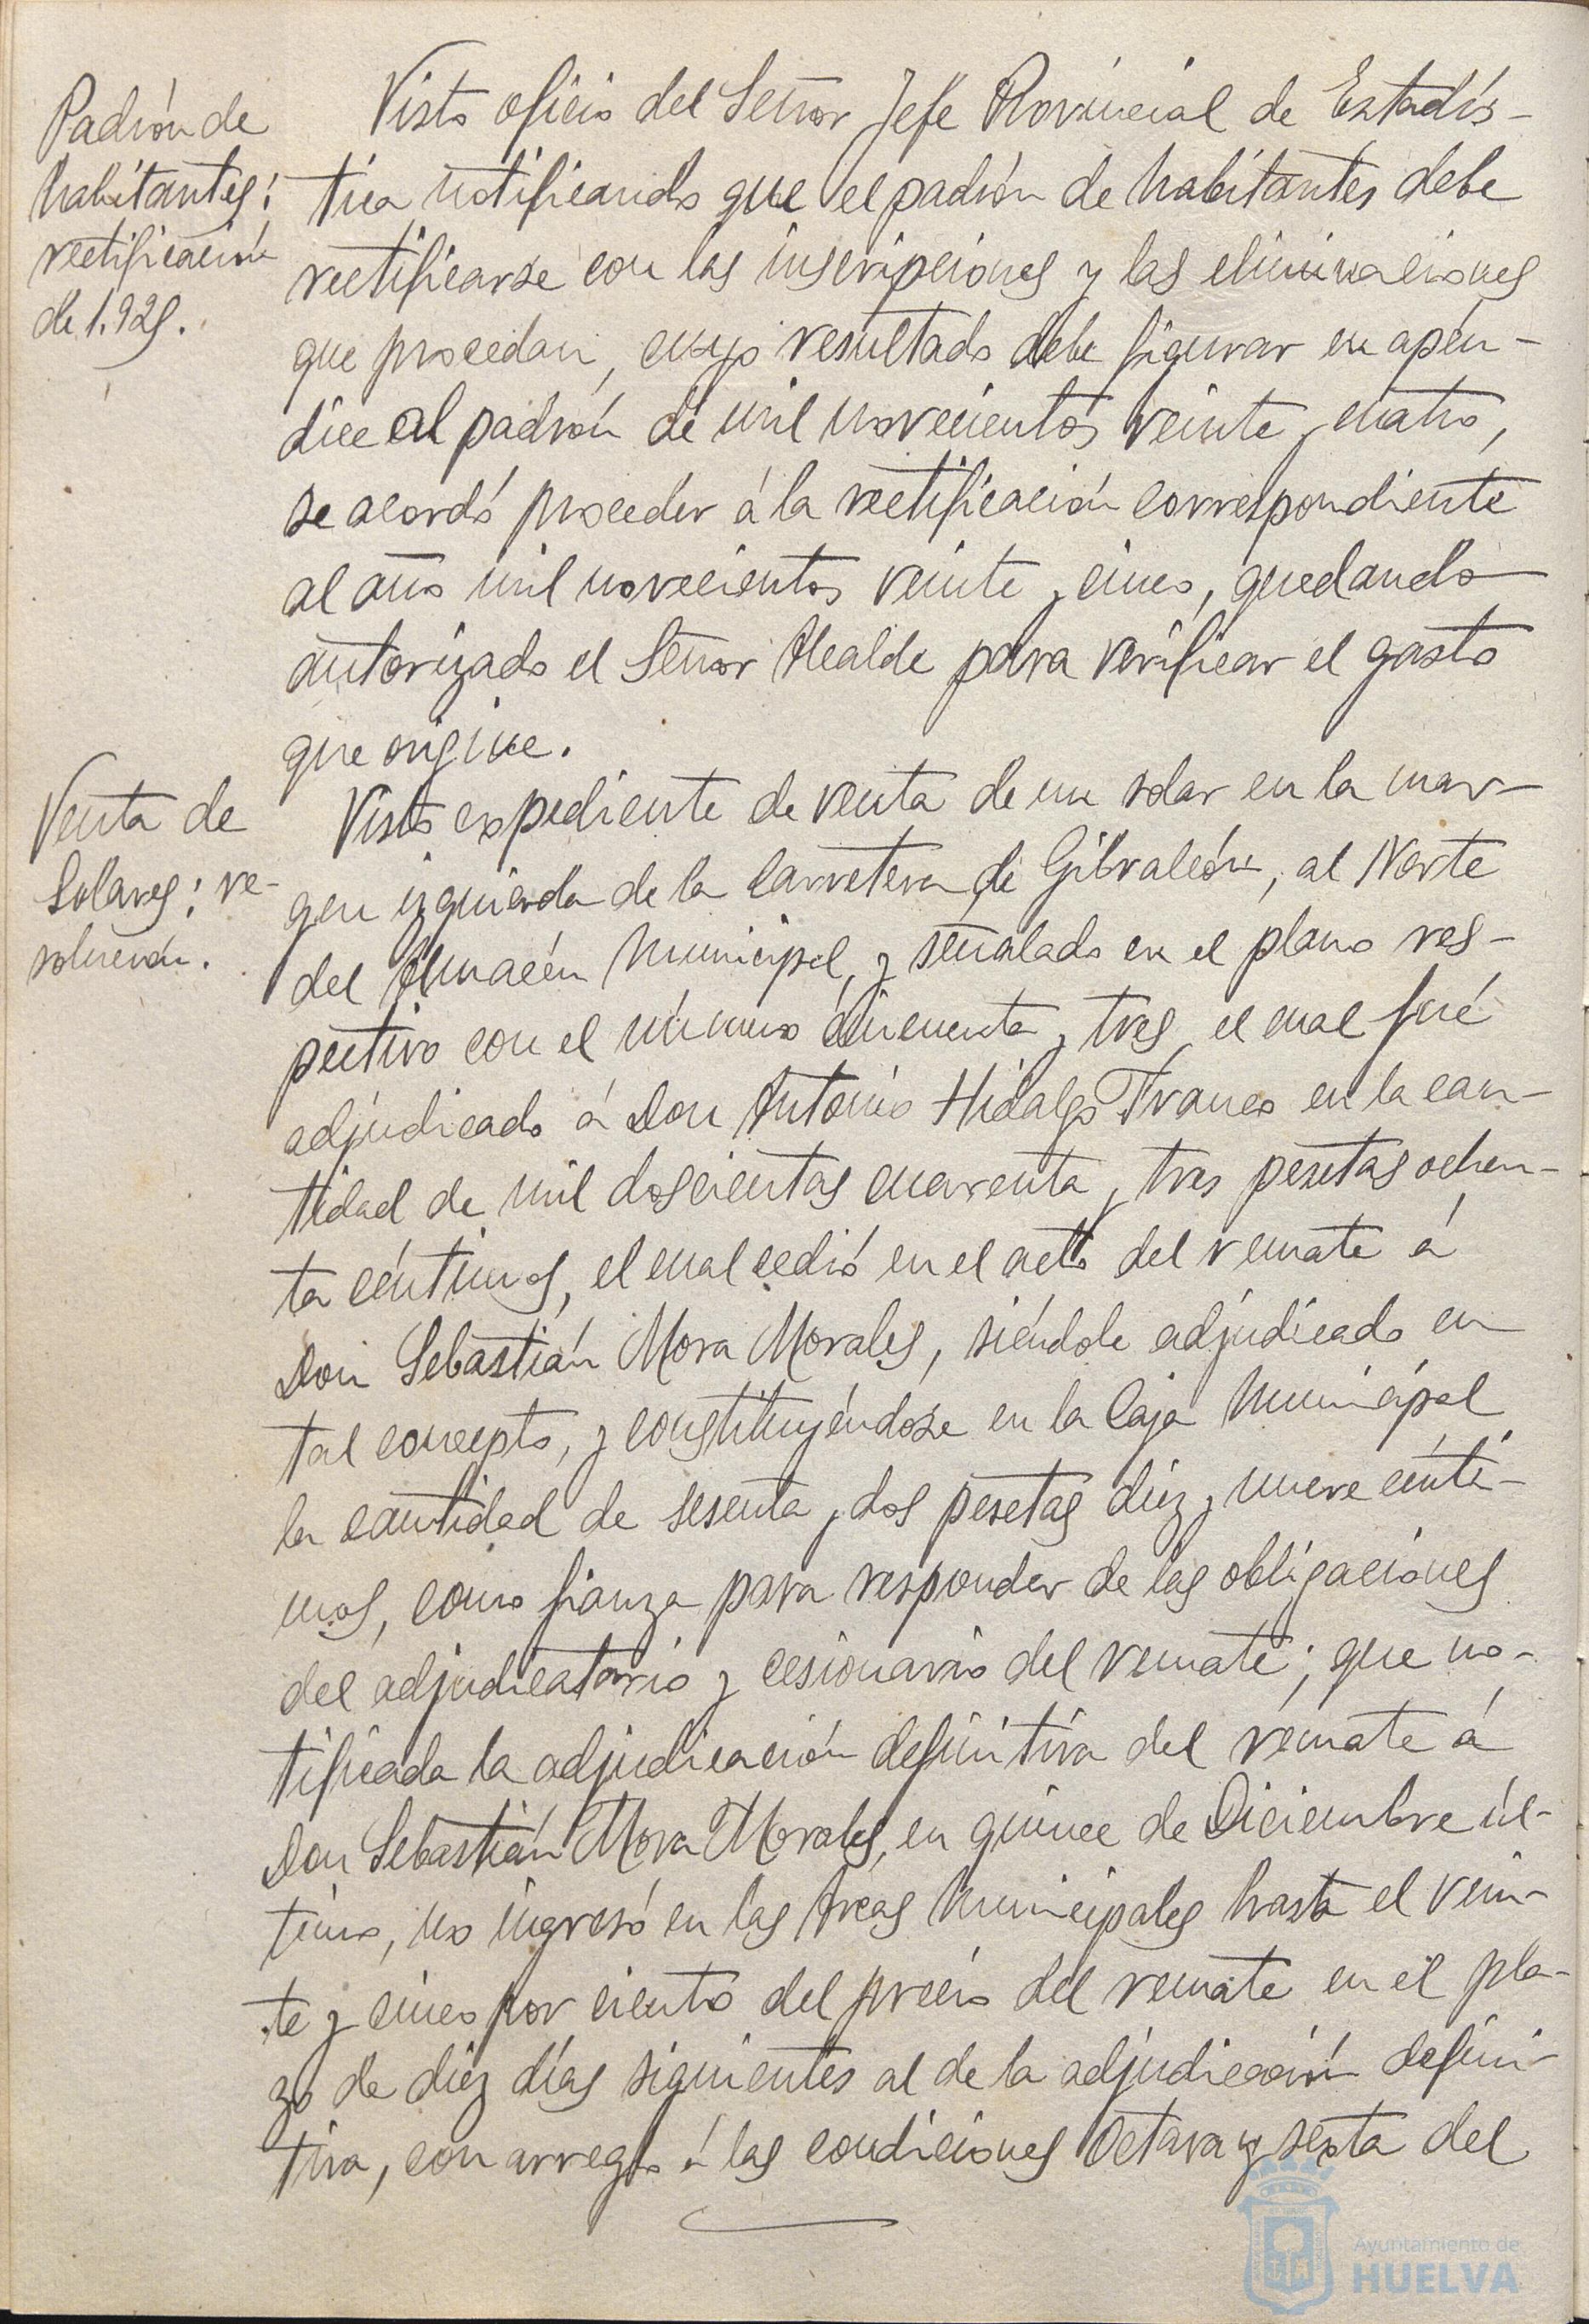 Padrón de
habitantes:
rectificación
de 1.925.
Visto oficio del Señor Jefe Provincial de Estadís-
tica notificando que el padrón de habitantes debe
rectificarse con las inscripciones y las eliminaciones
que procedan, cuyo resultado debe figurar en apén-
dice al padrón de mil novecientos veinte y cuatro,
se acordó proceder á la rectificación correspondiente
al año mil novecientos veinte y cinco, quedando
autorizado el Señor Alcalde para verificar el gasto
que origine.
Venta de
Solares; re-
solución.
Visto expediente de venta de un solar en la mar-
gen izquierda de la Carretera de Gibraleón, al Norte
del Almacén Municipal, y señalado en el plano res-
pectivo con el número cincuenta y tres, el cual fué
adjudicado á Don Antonio Hidalgo Franco en la can-
tidad de mil doscientas cuarenta y tres pesetas ochen-
ta céntimos, el cual cedió en el acto del remate á
Don Sebastián Mora Morales, siéndole adjudicado en
tal concepto, y constituyéndose en la Caja Municipal
la cantidad de sesenta y dos pesetas diez y nueve cénti-
mos, como fianza para responder de las obligaciones
del adjudicatario y cesionario del remate; que no-
tificada la adjudicación definitiva del remate á
Don Sebastián Mora Morales, en quince de Diciembre úl-
timo, no ingresó en las Arcas Municipales hasta el vein-
te y cinco por ciento del precio del remate en el pla-
zo de diez días siguientes al de la adjudicación defini-
tiva, con arreglo á las condiciones Octava y sexta del
Ayuntamiento de
HUELVA